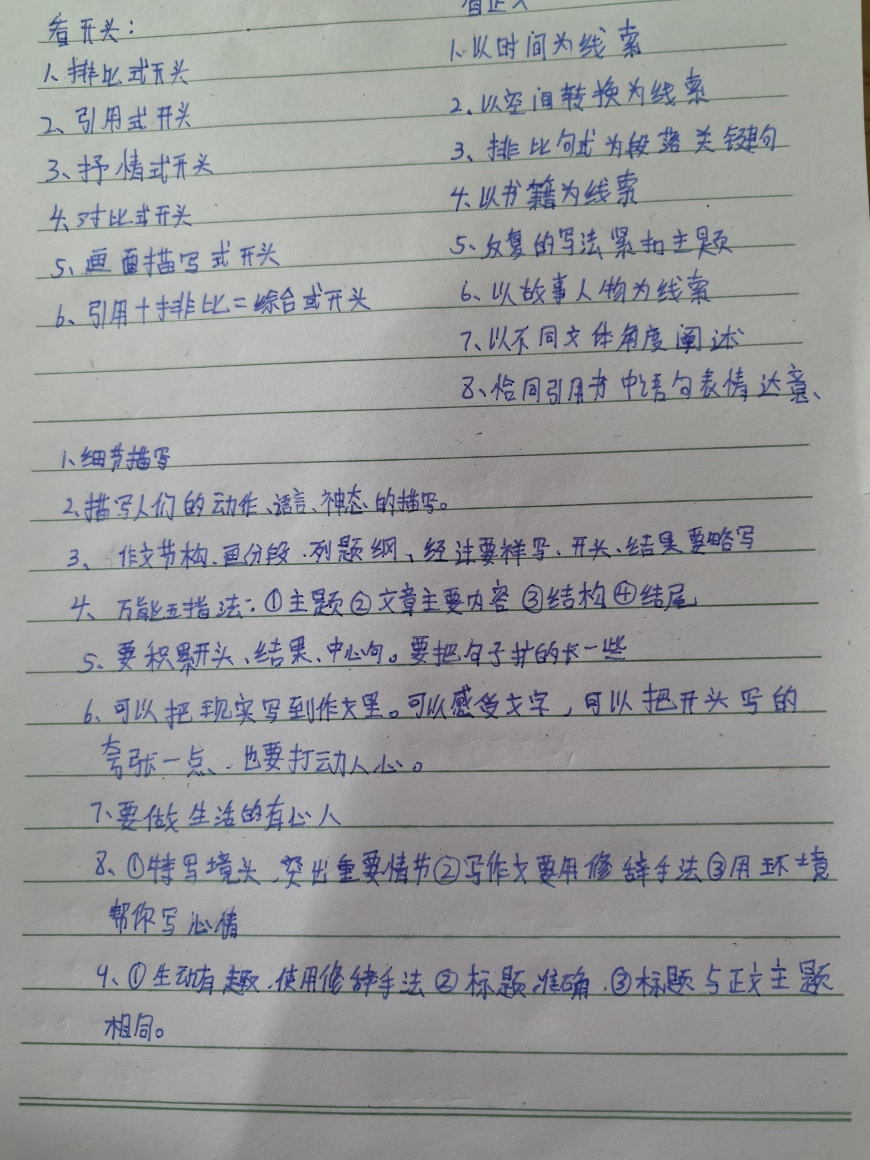 看开头：
1、排比式开头
2、引用式开头
3、抒情式开头
4、对比式开头
5、画面描写式开头
6、引用+排比=综合式开头
看正文
1、以时间为线索
2、以空间转换为线索
3、排比句式为段落关键句
4、以书籍为线索
5、反复的写法紧扣主题
6、以故事人物为线索
7、以不同文体角度阐述
8、恰同引用书中语句表情达意、
1、细节描写
2、描写人们的动作、语言、神态的描写。
3、作文节构、画分段、列题纲、经过要样写、开头、结果要略写
4、万能五指法：①主题②文章主要内容③结构④结尾
5、要积累开头、结果、中心句。要把句子扩的长一些
6、可以把现实写到作文里。可以感受文字，可以把开头写的
夸张一点、也要打动人心。
7、要做生活的有心人
8、①特写境头、突出重要情节②写作文要用修辞手法③用环境
帮你写心情
9、①生动有趣、使用修辞手法②标题准确、③标题与正文主题
相同。